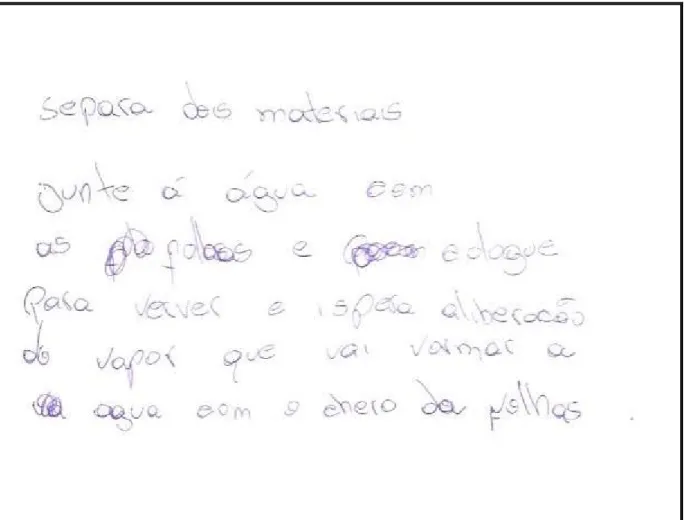 separa dos materiais
junte á água com
as folhas e cologue
Para verver e ispera aliberacão
do vapor que vai vormar a
agua com o chero da folhas.